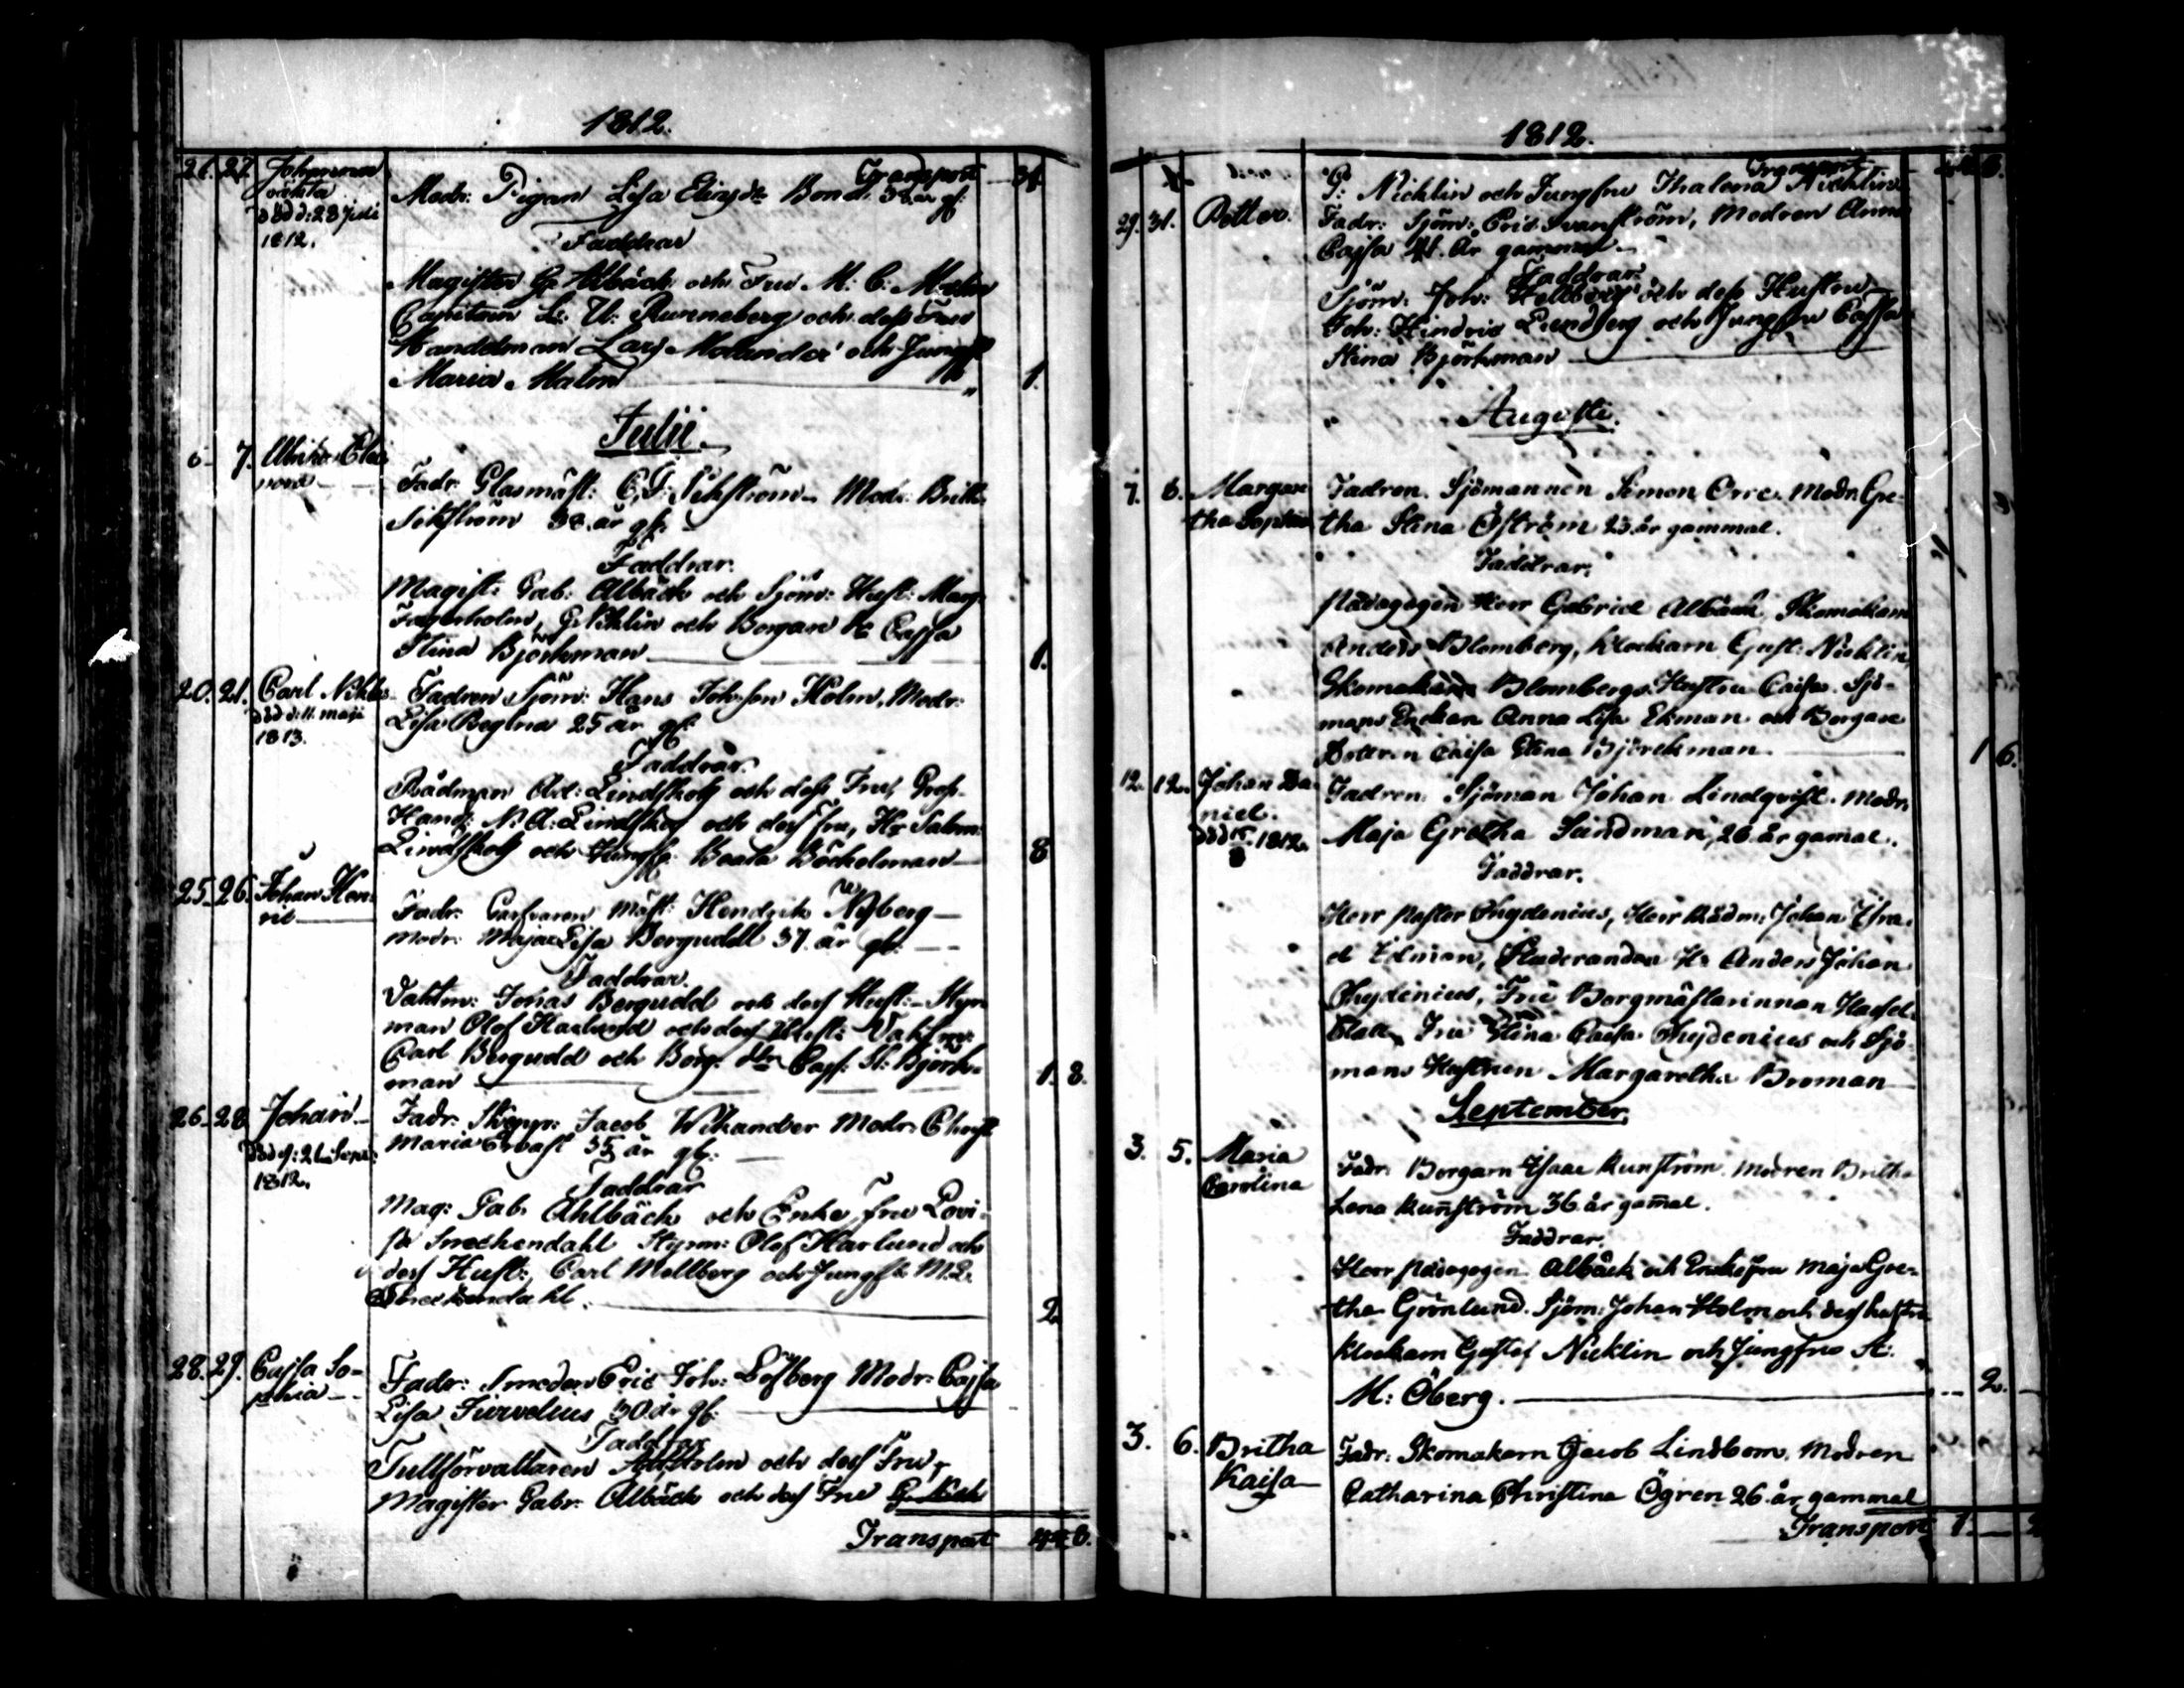 1812.
Transport 31.
21. 22. Johanna
oäkta
död d: 28 Julii
1812.
Modr: Pigan Lisa 38 år gl:
Faddrar
Magister G: Albäck och Fru M: C: Malm
Capitain L: U: Runneberg och dess Fru
Handelman Lars Molander och Jungf:
Maria Malm 1.
Julii.
6. 7. Ulrika Eleo
nora
Fadr: Glasmäst: C, F: Sikström Modr: Britta
Sikström 38 år gl:
Faddrar.
Magist: Gab: Albäck och Sjöm: Hust: Marg:
Fagerholm, G: Niklin och Borgare Cajsa
Stina Björkman 1.
20. 21. Carl Niklas
död d: 11. maji
1813.
Fadren Sjöm: Hans Joh:son Holm, Modr:
Lisa Regina 25 år gl:
Faddrar.
Rådman Ad: Lindskog och dess Fru,
Hand: N: A: Lindskog och dess Fru, Hr Salom:
Lindskog och Jungf: Beata Böckelman 8
25. 26. Johan Hen-
ric
Fadr: Garfvaren Mäst: Hendrik Nyberg
Modr: Maja Lisa Bergudd 37. år gl:
Faddrar.
Vaktm: Jonas Bergudd och dess Hust: Styr-
man Olof Haslund och dess Hust: Vaktm:
Carl Bergudd och Borg: dtr Cajs: St: Björk-
man 1. 8.
26. 28 Johan
död d: 21 Sept:
1812.
Fadr: Skepp: Jacob Wikander Modr: Christ:
Maria 35 år gl:
Faddrar
Mag: Gab: Ahlbäck och Enke fru Lovi-
sa Sneckendahl Styrm: Olof Haslund och
dess Hust: Carl Mellberg och Jungf: M: L:
Sneckendahl. 2
28. 29. Cajsa So-
phia
Fadr: Smeden Eric Joh: Löfberg Modr: Cajsa
Lisa 30 år gl:
Faddrar
Tullförvaltaren och dess Fru,
Magister Gabr: Albäck och dess Fru
Transport 44 6.
1812.
Transport
G: Nicklin och Jungfru Nicklin
29. 31. Petter.
Fadr: Sjöm: Eric Svanström, Modren Anna
Cajsa 41. år gammal
Faddrar.
Sjöm: Joh: Hellberg och dess Hustru
Joh: Hindric Lundberg och Jungfru Cajsa
Stina Björkman
Augusti.
7. 8. Margare
tha Sophia
Fadren. Sjömannen Simon Orre. Modr. Gre-
tha Stina Öström 23. år gammal.
Faddrar.
Pädagogen Herr Gabriel Albäck, Skomakarn
Anders Blomberg, Klockarn Gust: Nicklin,
Skomakare Blombergs Hustru Caisa. Sjö-
mans Enckan Anna Lisa Ekman och Borgare
Dottren Caisa Stina Björckman 1 6.
12. 12. Johan Da
niel.
död 15/8 1812.
Fadren, Sjöman Johan Lindqvist. Modr.
Maja Gretha Sandman, 26 år gamal.
Faddrar.
Herr Pastor Chydenius, Herr Rådm: Johan Isra-
el Edman, Studeranden Hr Anders Johan
Chydenius, Fru Borgmästarinnan Hassel-
blatt, Fru Stina Caisa Chydenius och Sjö-
mans Hustrun Margaretha Broman
September.
3. 5. Maria
Carolina
Fadr: Borgarn Isaac Kunström. Modren Britha
Lena Kunström 36 år gamal.
Faddrar.
Herr Pädagogen Albäck och Enkefru Maja Gre-
tha Grönlund. Sjöm: Johan Holm och dess hustru
Klockarn Gustaf Nicklin och Jungfru A:
M: Öberg. 2.
3. 6. Britha
Kaisa
Fadr: Skomakarn Jacob Lindbom. Modren
Catharina Christina Ögren 26. år gammal
Transport 1